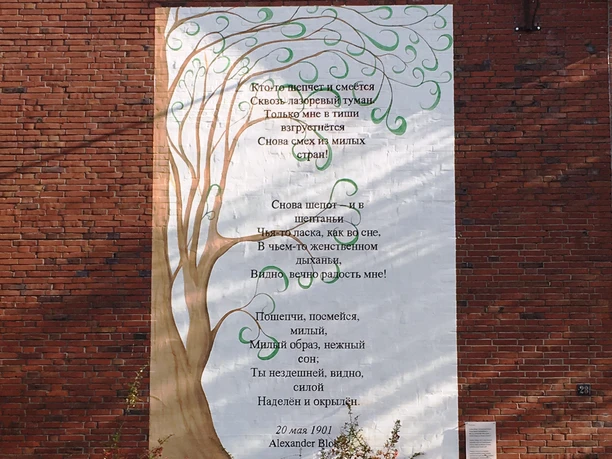 Кто-то шепчет и смеётся
Сквозь лазоревый туман.
Только мне в тиши
взгрустнётся
Снова смех из милых
стран!
Снова шепот – и в
шептаньи
Чья-то ласка, как во сне,
В чьем-то женственном
дыханьи,
Видно, вечно радость мне!
Пошепчи, посмейся,
милый,
Милый образ, нежный
сон;
Ты нездешней, видно,
силой
Наделён и окрылён.
20 мая 1901
Alexander Blok
28